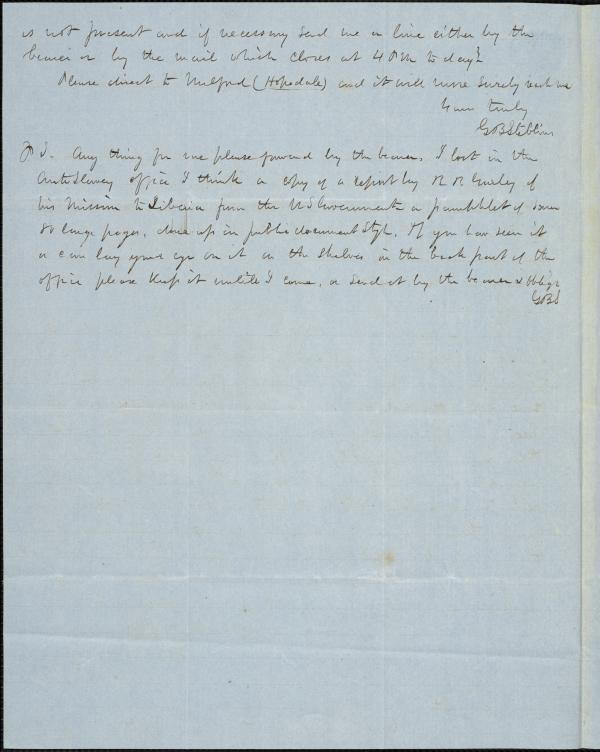 is not present and if necessary send me a line either by the
bearer or by the mail which closes at 4 P M to day?
Please direct to Milford (Hopedale) and it will more surely reach me
Yours truly
G B Stebbins
P S. Any thing for me please forward by the bearer. I lost in the
Anti Slavery office I think a copy of a report by R R Gurley of
his Mission to Liberia from the U S Government a pamphlet of some
80 large pages, done up in public document style. If you have seen it
or can lay your eye on it on the shelves in the back part of the
office please keep it until I come, or send it by the bearer & oblige
G B S